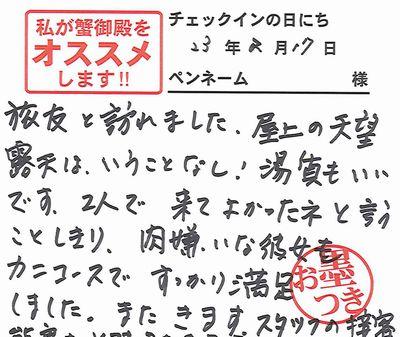 私が蟹御殿を
オススメ
します!!
チェックインの日にち
23年2月17日
ペンネーム 様
旅友と訪れました、屋上の天望
露天は、いうことなし！湯質もいい
です、2人で 来てよかったネと言う
ことしきり、肉嫌いな彼女も
カニコースで すっかり満足
しました。また きます、スタッフの接客
お墨つき